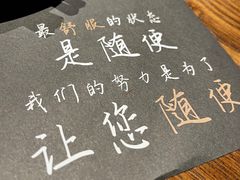 最舒服的状态
是随便
我们的努力是为了
让您随便